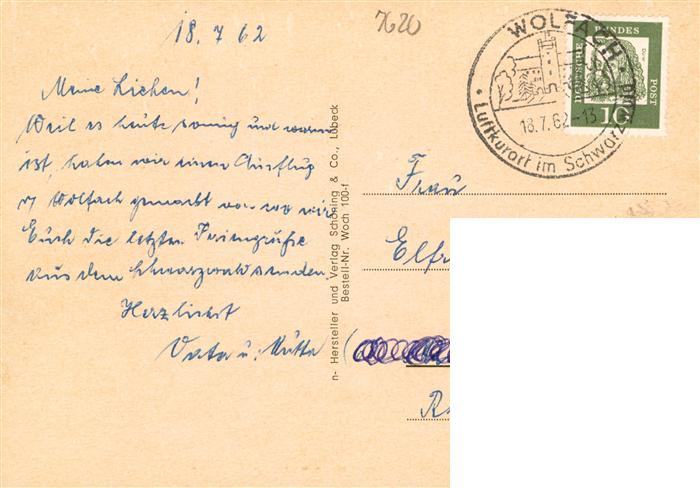 18.7.62
Meine Lieben!
Weil es heute sonnig und warm
ist, haben wir einen Ausflug
n Wolfach gemacht von wo wir
Euch die letzten Feriengrüße
aus dem Schwarzwald senden
Herzlichst
Vata u. Mutta
n- Hersteller und Verlag Schöning & Co., Lübeck
Bestell-Nr. Woch 100-f
7620
WOLFACH
18.7.62-13
Luftkurort im Schwarzwald
DEUTSCHE BUNDES POST
10
Frau
Elfr